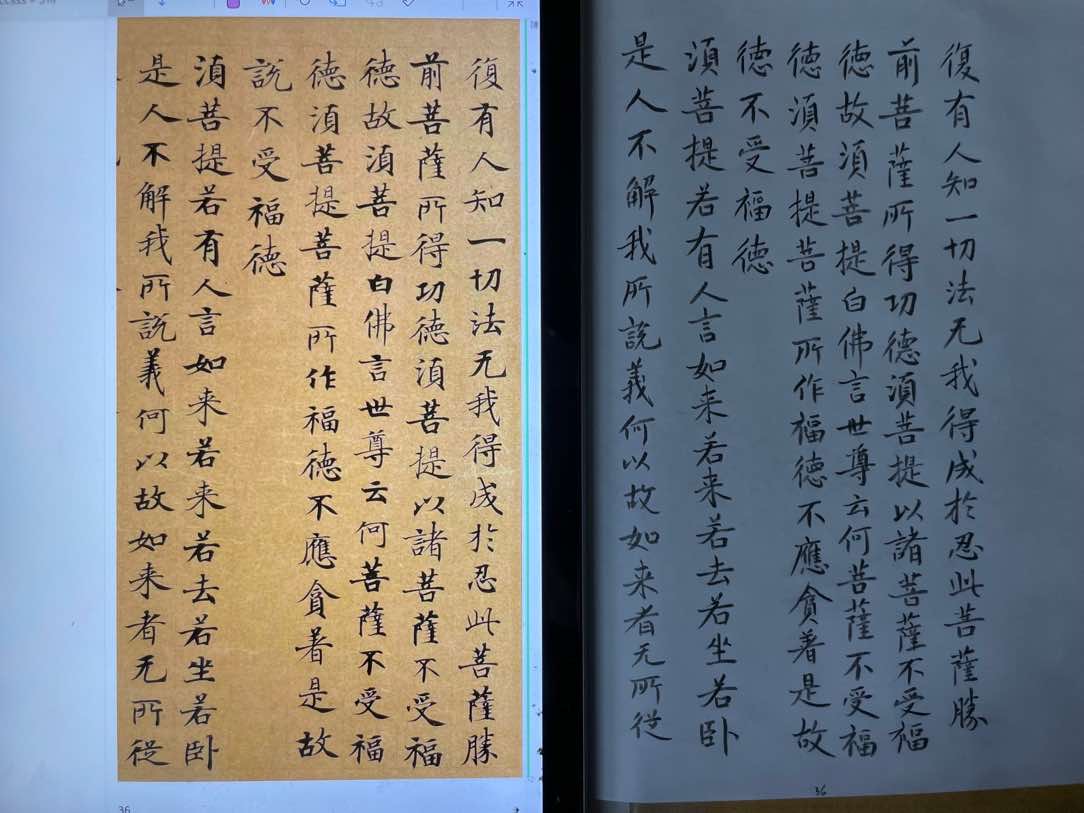 復有人知一切法无我得成於忍此菩薩勝
前菩薩所得功德須菩提以諸菩薩不受福
德故須菩提白佛言世尊云何菩薩不受福
德須菩提菩薩所作福德不應貪著是故
說不受福德
須菩提若有人言如来若来若去若坐若卧
是人不解我所說義何以故如来者无所従
36
復有人知一切法无我得成於忍此菩薩勝
前菩薩所得功德須菩提以諸菩薩不受福
德故須菩提白佛言世尊云何菩薩不受福
德須菩提菩薩所作福德不應貪著是故
德不受福德
須菩提若有人言如来若来若去若坐若卧
是人不解我所說義何以故如来者无所従
36